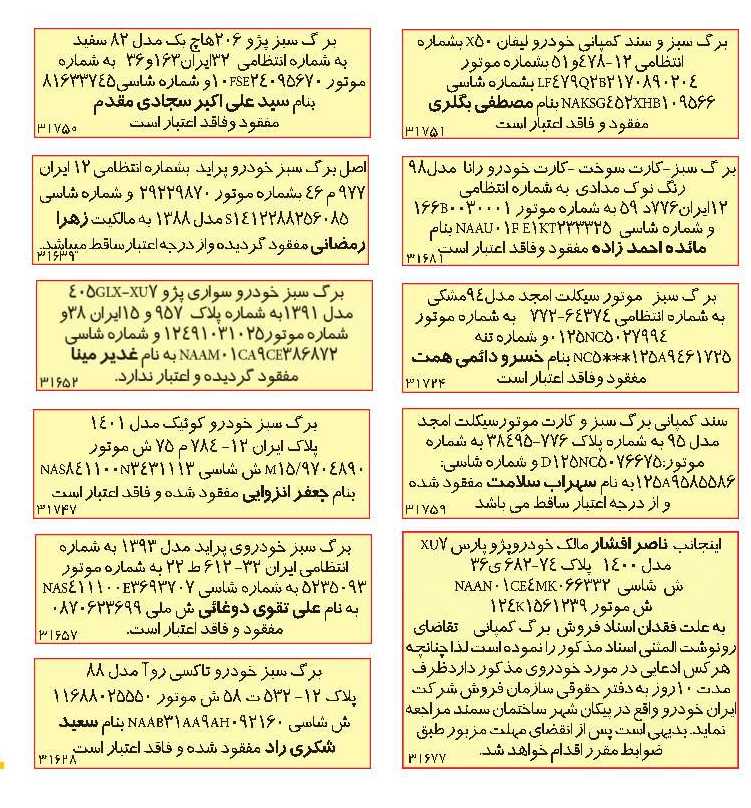 برگ سبز و سند کمپانی خودرو لیفان X۵۰ بشماره
انتظامی ۱۲-۴۷۸و۵۱ بشماره موتور
LF۴۷۹Q۲B۲۱۷۰۸۹۰۲۰۴ بشماره شاسی
NAKSG۴۵۲XHB۱۰۹۵۶۶ بنام مصطفی بگلری
مفقود و فاقد اعتبار است
۳۱۷۵۱
برگ سبز-کارت سوخت -کارت خودرو رانا مدل۹۸
رنگ نوک مدادی به شماره انتظامی
۱۲ایران۷۷۶د ۵۹ به شماره موتور ۱۶۶B۰۰۳۰۰۰۱
و شماره شاسی NAAU۰۱FE۱KT۲۳۳۳۲۵ بنام
مائده احمد زاده مفقود وفاقد اعتبار است
۳۱۶۸۱
برگ سبز موتور سیکلت امجد مدل۹۴مشکی
به شماره انتظامی ۶۴۳۷۴-۷۷۲ به شماره موتور
۰۱۲۵NC۵۰۲۷۹۹۴و شماره تنه
NC۵***۱۲۵A۹۴۶۱۷۲۵ بنام خسرو دائمی همت
مفقود وفاقد اعتبار است
۳۱۷۲۴
سند کمپانی برگ سبز و کارت موتورسیکلت امجد
مدل ۹۵ به شماره پلاک ۷۷۶-۳۸۴۹۵ به شماره
موتور:D۱۲۵NC۵۰۷۶۶۷۵ و شماره شاسی:
۱۲۵A۹۵۸۵۵۸۶به نام سهراب سلامت مفقود شده
و از درجه اعتبار ساقط می باشد
۳۱۷۵۹
اینجانب ناصر افشار مالک خودروپژو پارس XU۷
مدل ۱۴۰۰ پلاک ۷۴-۶۸۲ ی۳۶
ش شاسی NAAN۰۱CE۴MK۰۶۶۳۳۲
ش موتور ۱۲۴K۱۵۶۱۲۳۹
به علت فقدان اسناد فروش برگ کمپانی تقاضای
رونوشت المثنی اسناد مذکور را نموده است لذا چنانچه
هرکس ادعایی در مورد خودروی مذکور داردظرف
مدت ۱۰روز به دفتر حقوقی سازمان فروش شرکت
ایران خودرو واقع در پیکان شهر ساختمان سمند مراجعه
نماید. بدیهی است پس از انقضای مهلت مزبور طبق
ضوابط مقرر اقدام خواهد شد.
۳۱۶۷۷
برگ سبز پژو ۲۰۶هاچ بک مدل ۸۲ سفید
به شماره انتظامی ۳۲ایران۱۶۳و۳۶ به شماره
موتور ۱۰FSE۲۴۰۹۵۶۷۰و شماره شاسی۸۱۶۳۳۷۴۵
بنام سید علی اکبر سجادی مقدم
مفقود وفاقد اعتبار است
۳۱۷۵۰
اصل برگ سبز خودرو پراید بشماره انتظامی ۱۲ ایران
۹۷۷ م ۴۶ بشماره موتور ۲۹۲۲۹۸۷۰ و شماره شاسی
S۱۴۱۲۲۸۸۲۵۶۰۸۵ مدل ۱۳۸۸ به مالکیت زهرا
رمضانی مفقود گردیده واز درجه اعتبارساقط میباشد.
۳۱۶۳۹
برگ سبز خودرو سواری پژو ۴۰۵GLX-XU۷
مدل ۱۳۹۱به شماره پلاک ۹۵۷ و ۱۵ایران ۳۸و
شماره موتور۱۲۴۹۱۰۳۱۰۲۵و شماره شاسی
NAAM۰۱CA۹CE۳۸۶۸۷۲ به نام غدیر مینا
مفقود گردیده و اعتبار ندارد.
۳۱۶۵۲
برگ سبز خودرو کوئیک مدل ۱۴۰۱
پلاک ایران ۱۲-۷۸۴ م ۷۵ ش موتور
M۱۵/۹۷۰۴۸۹۰ ش شاسی NAS۸۴۱۱۰۰N۳۴۳۱۱۱۳
بنام جعفر انزوایی مفقود شده و فاقد اعتبار است
۳۱۷۴۷
برگ سبز خودروی پراید مدل ۱۳۹۳ به شماره
انتظامی ایران ۳۲-۶۱۲ ط ۲۲ به شماره موتور
۵۲۳۵۰۹۳ به شماره شاسی NAS۴۱۱۱۰۰E۳۶۹۳۷۰۷
به نام علی تقوی دوغائی ش ملی ۰۸۷۰۶۲۳۶۹۹
مفقود و فاقد اعتبار است.
۳۱۶۵۷
برگ سبز خودرو تاکسی روآ مدل ۸۸
پلاک ۱۲- ۵۳۲ ت ۵۸ ش موتور ۱۱۶۸۸۰۲۵۵۵۰
ش شاسی NAAB۳۱AA۹AH۰۹۲۱۶۰ بنام سعید
شکری راد مفقود شده و فاقد اعتبار است
۳۱۶۲۸